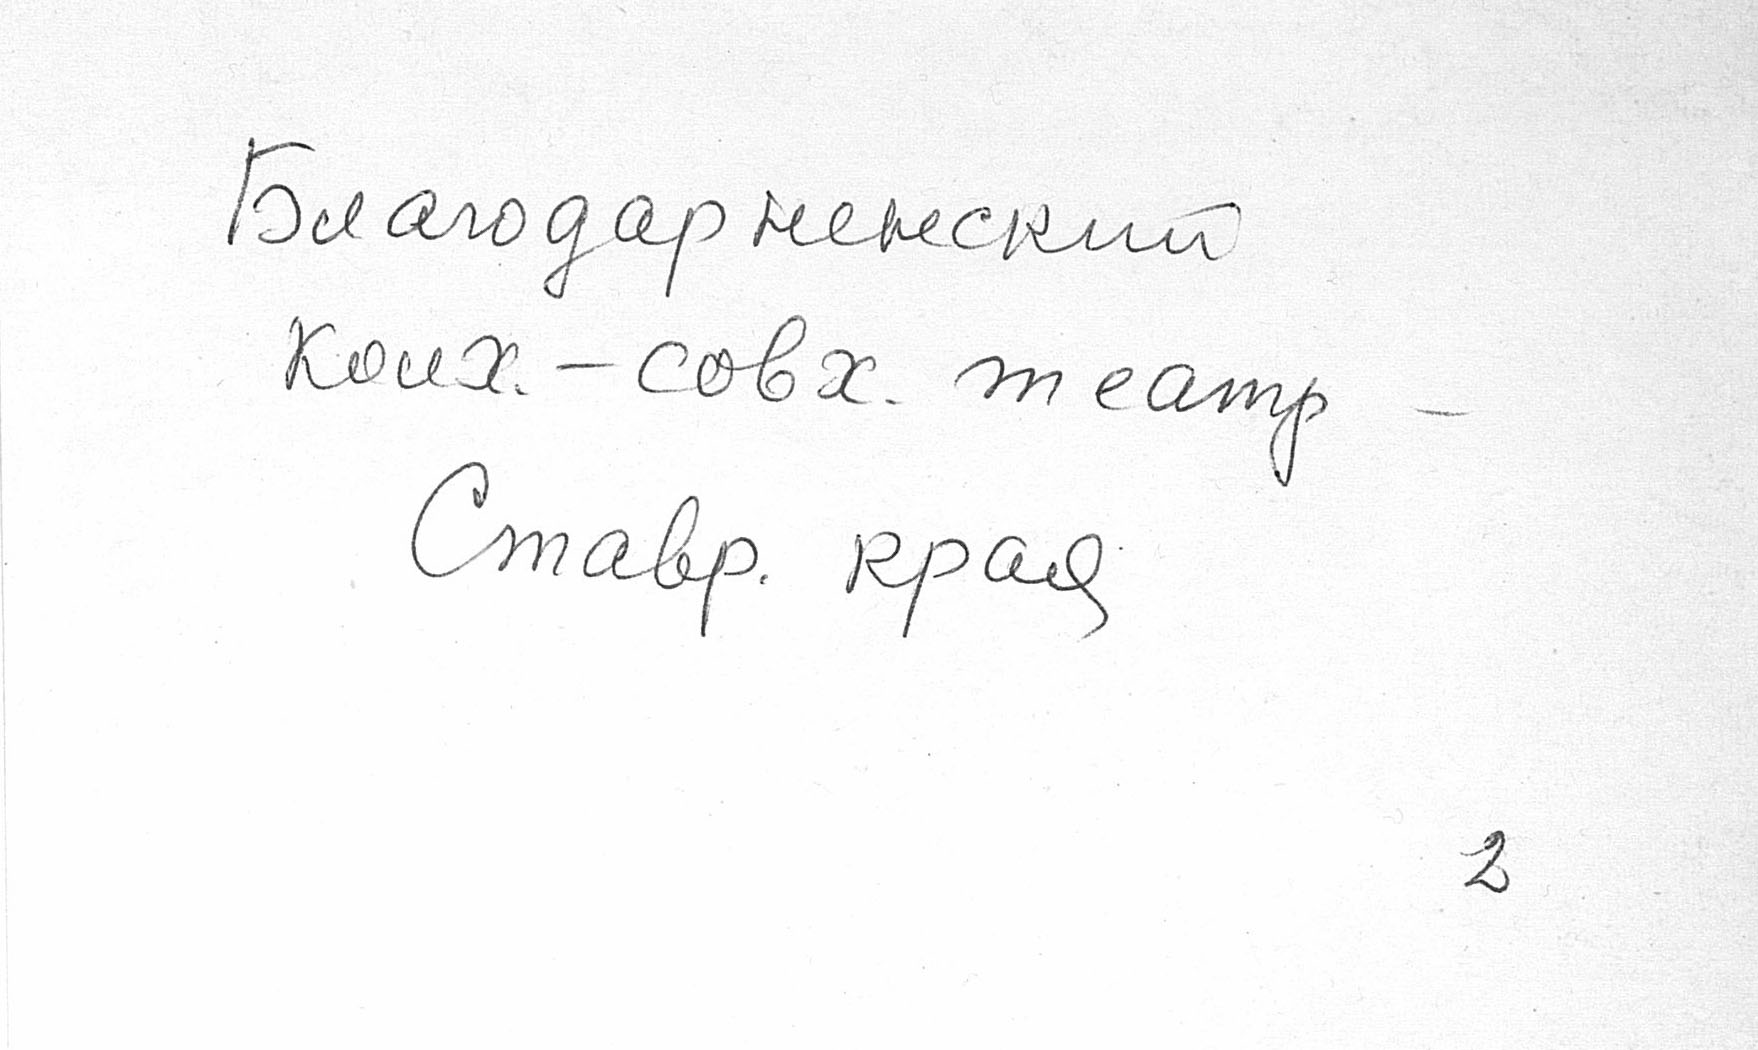 Благодарненский
колх. – совх. театр –
Ставр. края
2